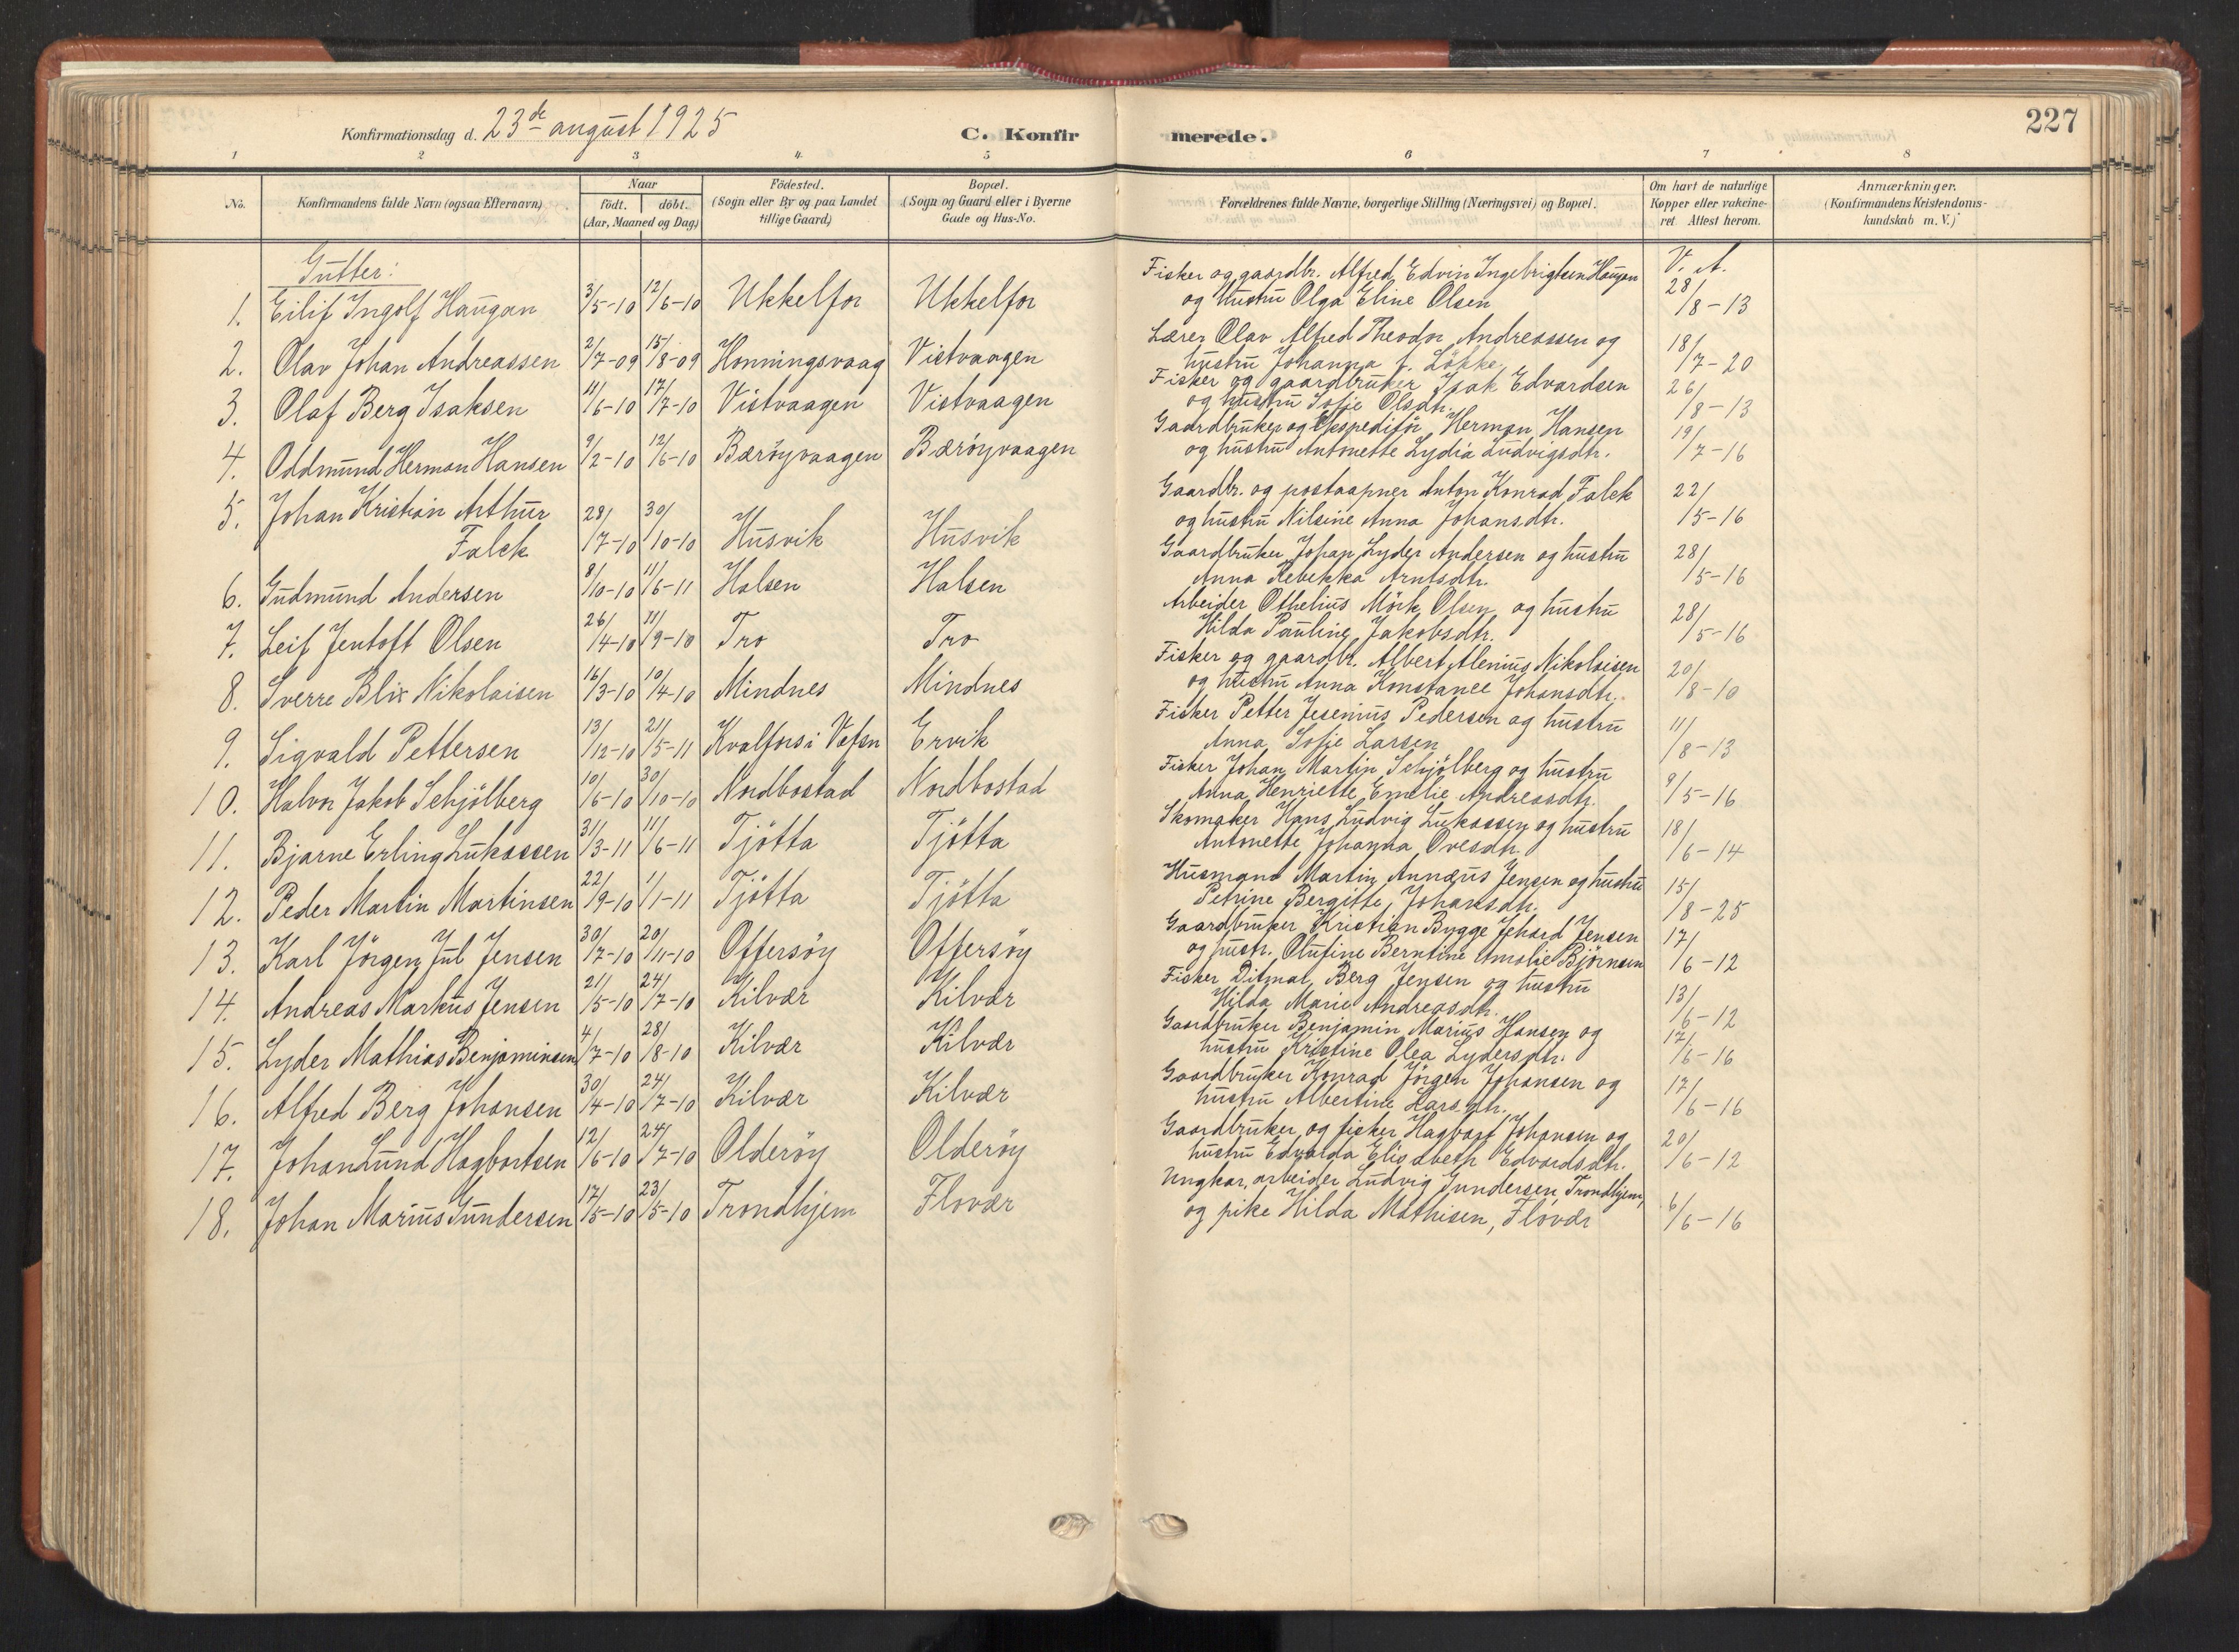 Konfirmationsdag d. 23de august 1925
C. Konfirmerede.
227
1 2 3 4 5 6 7 8
No.
Konfirmandens fulde Navn (ogsaa Efternavn)
Naar født. døbt. (Aar, Maaned og Dag)
Födested. (Sogn eller By og paa Landet tillige Gaard)
Bopæl. (Sogn og Gaard eller i Byerne Gade og Hus-No.
Forældrenes fulde Navne, borgerlige Stilling (Næringsvei) og Bopæl.
Om havt de naturlige Kopper eller vakcineret. Attest herom.
Anmærkninger. (Konfirmandens Kristendomskundskab m. V.)
Gutter:
V. A.
1. Eilif Ingolf Haugan 3/5-10 12/6-10 Ukkelfor Ukkelfor Fisker og gaardbr. Alfred Edvin Ingebrigtsen Haugan
og hustru Olga Eline Olsen 28/8-13
2. Olav Johan Andreassen 2/7-09 15/8-09 Honningsvaag Vistvaagen Lærer Olav Alfred Theodor Andreassen og
hustru Johanna f. Løkke 18/7-20
3. Olaf Berg Isaksen 11/6-10 17/7-10 Vistvaagen Vistvaagen Fisker og gaardbruker Isak Edvardsen
og hustru Sofie Olsdtr. 26/8-13
4. Oddmund Herman Hansen 9/2-10 12/6-10 Bærøyvaagen Bærøyvaagen Gaardbruker og Ekspeditør Herman Hansen
og hustru Antonette Lydia Ludvigsdtr. 19/7-16
5. Johan Kristian Arthur
Falck 28/7-10 30/10-10 Husvik Husvik Gaardbr. og postaapner Anton Konrad Falck
og hustru Nilsine Anna Johansdtr. 22/5-16
6. Gudmund Andersen 8/10-10 11/6-11 Halsen Halsen Gaardbruker Johan Lyder Andersen og hustru
Anna Rebekka Arntsdtr. 28/5-16
7. Leif Jentoft Olsen 26/4-10 11/9-10 Tro Tro Arbeider Othelius Mörk Olsen og hustru
Hilda Pauline Jakobsdtr. 28/5-16
8. Sverre Blix Nikolaisen 16/3-10 10/4-10 Mindnes Mindnes Fisker og gaardbr. Albert Alenius Nikolaisen
og hustru Anna Konstance Johansdtr. 20/8-10
9. Sigvald Pettersen 13/12-10 21/5-11 Kvalfors i Vefsn Ervik Fisker Petter Jesenius Pedersen og hustru
Anna Sofie Larsen 11/8-13
10. Halvor Jakob Schjölberg 10/6-10 30/10-10 Nordbostad Nordbostad Fisker Johan Martin Schjölberg og hustru
Anna Henriette Emelie Andreasdtr. 9/5-16
11. Bjarne Erling Lukassen 31/3-11 11/6-11 Tjötta Tjötta Skomaker Hans Ludvig Lukassen og hustru
Antonette Johanna Ovesdtr. 18/6-14
12. Peder Martin Martinsen 22/9-10 1/1-11 Tjötta Tjötta Husmand Martin Annæus Jensen og hustru
Petrine Bergitte Johansdtr. 15/8-25
13. Karl Jörgen Jul Jensen 30/7-10 20/11-10 Offersöy Offersöy Gaardbruker Kristian Bygge Jensen
og hustr. Olufine Berntine Amalie Björnsen 17/6-12
14. Andreas Markus Jensen 21/5-10 24/7-10 Kilvær Kilvær Fisker Ditmar Berg Jensen og hustru
Hilda Marie Andreasdtr. 13/6-12
15. Lyder Mathias Benjaminsen 4/7-10 28/8-10 Kilvær Kilvær Gaardbruker Benjamin Marius Hansen og
hustru Kristine Olea Lydersdtr. 17/6-16
16. Alfred Berg Johansen 30/4-10 24/7-10 Kilvær Kilvær Gaardbruker Konrad Jörgen Johansen og
hustru Albertine Larsdtr. 17/6-16
17. Johan Lund Hagbartsen 12/6-10 24/7-10 Olderöy Olderöy Gaardbruker og fisker Hagbart Johansen og
hustru Edvarda Elisabeth Edvardsdtr. 20/6-12
18. Johan Marius Gundersen 17/5-10 23/5-10 Trondhjem Flovær Ungkar, arbeider Ludvig Gundersen, Trondhjem,
og pike Hilda Mathisen, Flovær 6/6-16